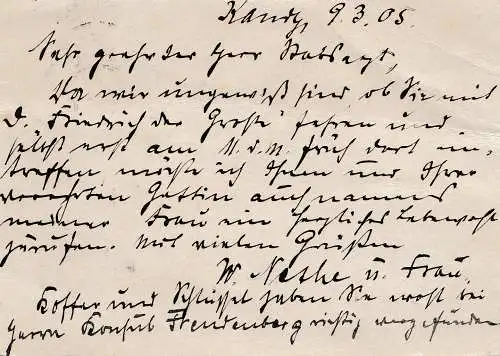 Kandy, 9.3.05.
Sehr geehrter Herr Stabsarzt,
Da wir ungewiß sind, ob Sie mit
D. Friedrich der Große" fahren und
selbst erst am M. d. M. früh dort ein-
treffen möchte ich Ihnen und Ihrer
verehrten Gattin auch namens
meiner Frau ein herzliches Lebewohl
zurufen. Mit vielen Grüßen
W. Nethe u. Frau.
Koffer und Schlüssel haben Sie wohl bei
Herrn Konsul Freudenberg richtig vorgefunden